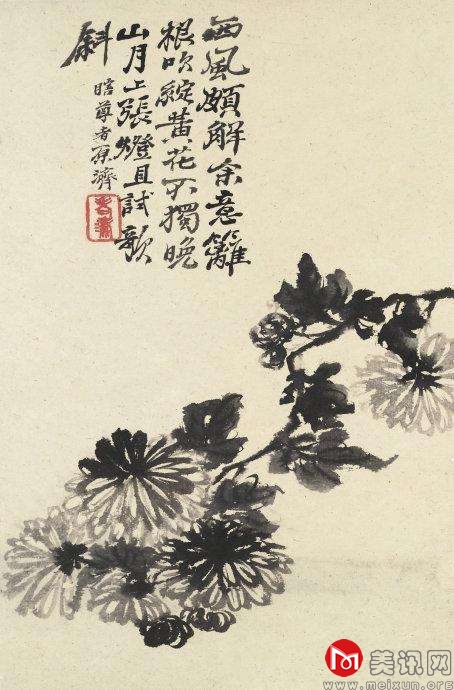 西風頗解余意籬
根吹綻黃花不獨晚
山月上張燈且試歌
斜
瞎尊者原濟
美讯网
www.meixun.org